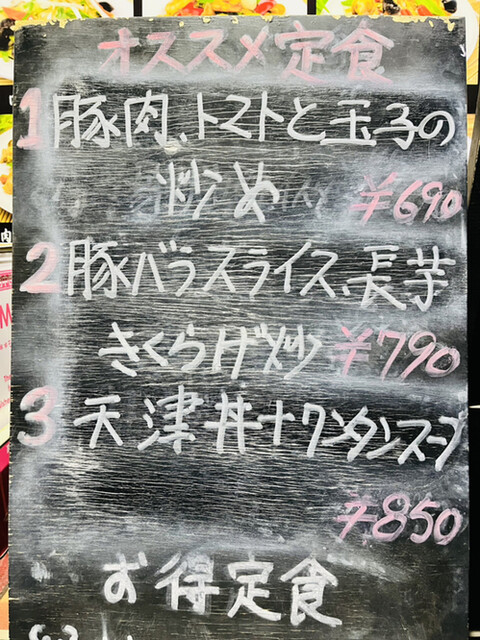 オススメ定食
1 豚肉、トマトと玉子の
炒め ¥690
2 豚バラスライス、長芋
きくらげ炒 ¥790
3 天津丼+ワンタンスープ
¥850
お得定食